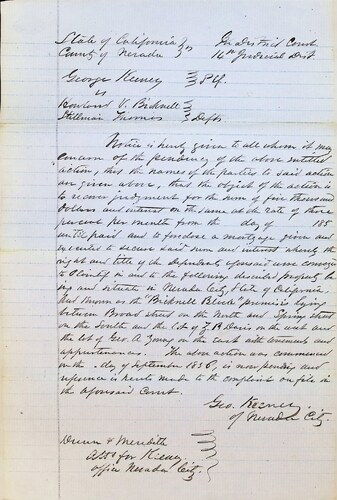 State of California
County of Nevada
In District Court
14th Judicial Dist
George Keeney Plf.
vs
Rowland V. Bicknell
Stillman Thomas Defts
Notice is hereby given to all whom it may
concern of the pendency of the above entitled
action, that the names of the parties to said action
are given above, that the object of the action is
to recover judgment for the sum of five thousand
dollars and interest on the same at the rate of three
percent per month from the day of 185
until paid and to foreclose a mortgage given and
executed to secure said sum and interest whereby the
right and title of the Defendants aforesaid were conveyed
to Plaintiff in and to the following described property ly-
ing and situate in Nevada City State of California
and known as the "Bicknell Block" premises lying
between Broad street on the North and Spring street
on the South and the lot of Z. P. Davis on the west and
the lot of Geo. A. Young on the east with easements and
appurtenances. The above action was commenced
on the day of September 1856, is now pending and
reference is hereto made to the complaint on file in
the aforesaid Court.
Geo. Keeney
of Nevada City.
Dunn & Meredith
Attys for Keeney
office Nevada City.